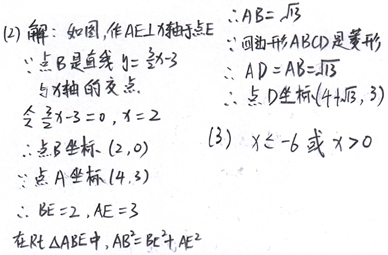 (2) 解：如图，作AE⊥X轴于点E
∵点B是直线 y=3/2x-3
与X轴的交点.
令 3/2x-3=0，x=2
∴点B坐标 (2,0)
∵点A坐标(4,3)
∴ BE=2，AE=3
在Rt△ABE中，AB²=BE²+AE²
∴AB=√13
∵四边形ABCD是菱形
∴ AD=AB=√13
∴点D坐标(4+√13, 3)
(3) x≤-6 或 x>0